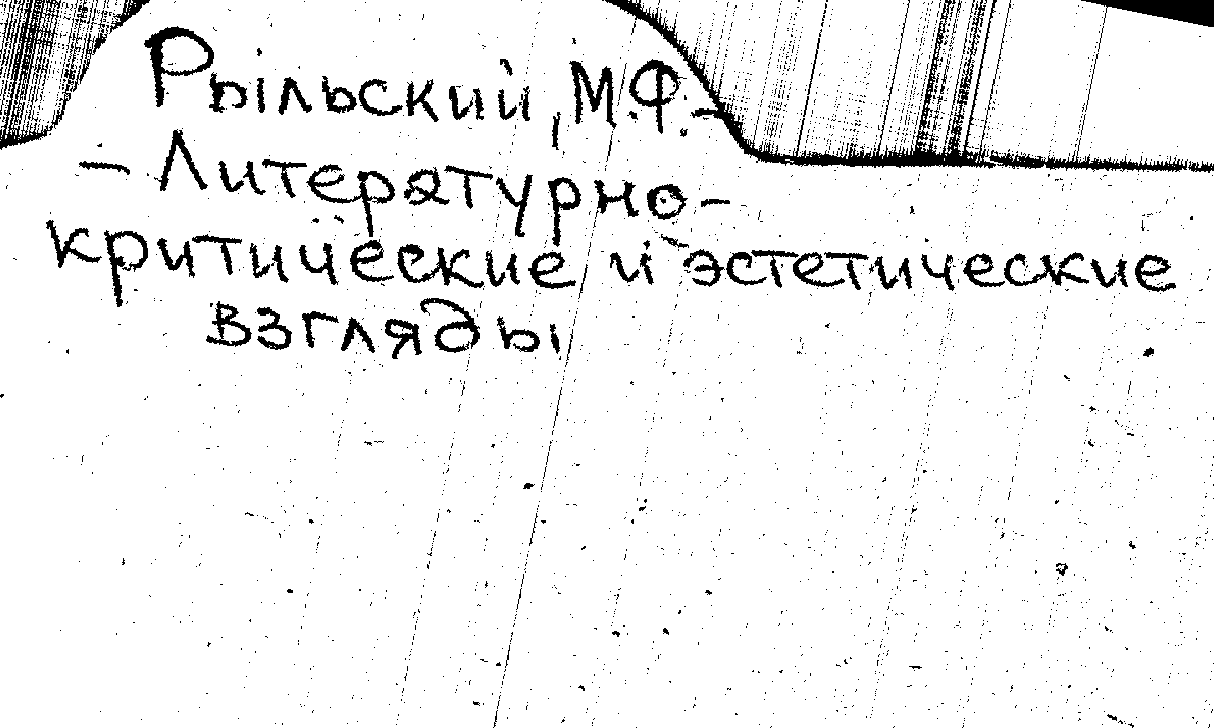 Рыльский, М.Ф. –
– Литературно-
критические и эстетические
взгляды